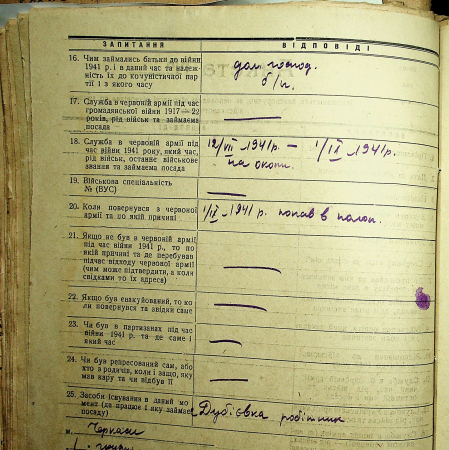 ЗАПИТАННЯ
ВІДПОВІДІ
16. Чим займались батьки до війни
1941 р. і в даний час та належ-
ність їх до комуністичної пар-
тії і з якого часу
дом. господ.
б/п.
17. Служба в червоній армії під час
громадянської війни 1917—22
років, рід військ та займаєма
посада
18. Служба в червоній армії під
час війни 1941 року, який час,
рід військ, останнє військове
звання та займаєма посада
12/VII 1941 р. — 1/IX 1941 р.
на окопи.
19. Військова спеціальність
№ (ВУС)
20. Коли повернувся з червоної
армії та по якій причині
1/IX 1941 р. попав в полон.
21. Якщо не був в червоній армії
під час війни 1941 р., то по
якій причині та де перебував
підчас відходу червоної армії
(чим може підтвердити, а коли
свідками то їх адреса)
22. Якщо був евакуйований, то ко-
ли повернувся та звідки саме
23. Чи був в партизанах під час
війни 1941 р. та де саме і
який час
24. Чи був репресований сам, або
хто з родичів, коли і защо, яку
мав кару та чи відбув її
25. Засоби існування в даний мо-
мент (де працює і яку займає
посаду)
Дубіївка робітник
м. Черкаси